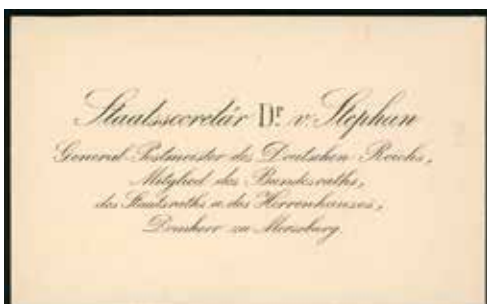 Staatssecretär Dr. v. Stephan
General-Postmeister des Deutschen Reichs,
Mitglied des Bundesraths,
des Staatsraths u. des Herrenhauses,
Domherr zu Merseburg.